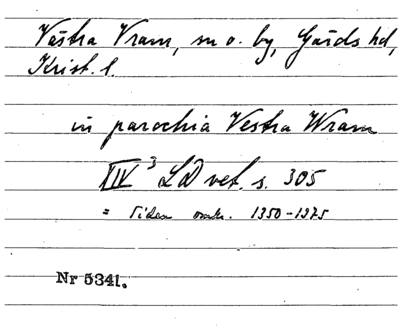 Västra Vram, sn o. by, Gärds hd,
Krist. l.
in parochia Vestra Wram
IV 3 LD vet. s. 305
= Tiden omkr. 1350-1375
Nr 5341.